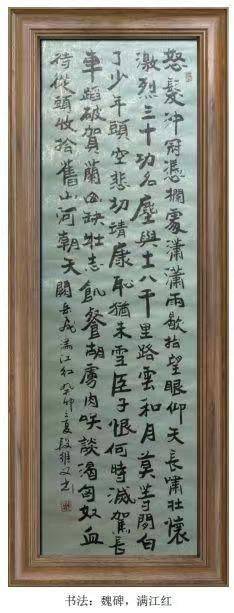 怒髮沖冠憑欄處瀟瀟雨歇抬望眼仰天長嘯壯懷
激烈三十功名塵與土八千里路雲和月莫等閒白
了少年頭空悲切靖康恥猶未雪臣子恨何時滅駕長
車蹈破賀蘭山缺壯志飢餐胡虜肉咲談渴匈奴血
待從頭收拾舊山河朝天闕 岳飛滿江红 癸卯之夏
书法：魏碑，满江红